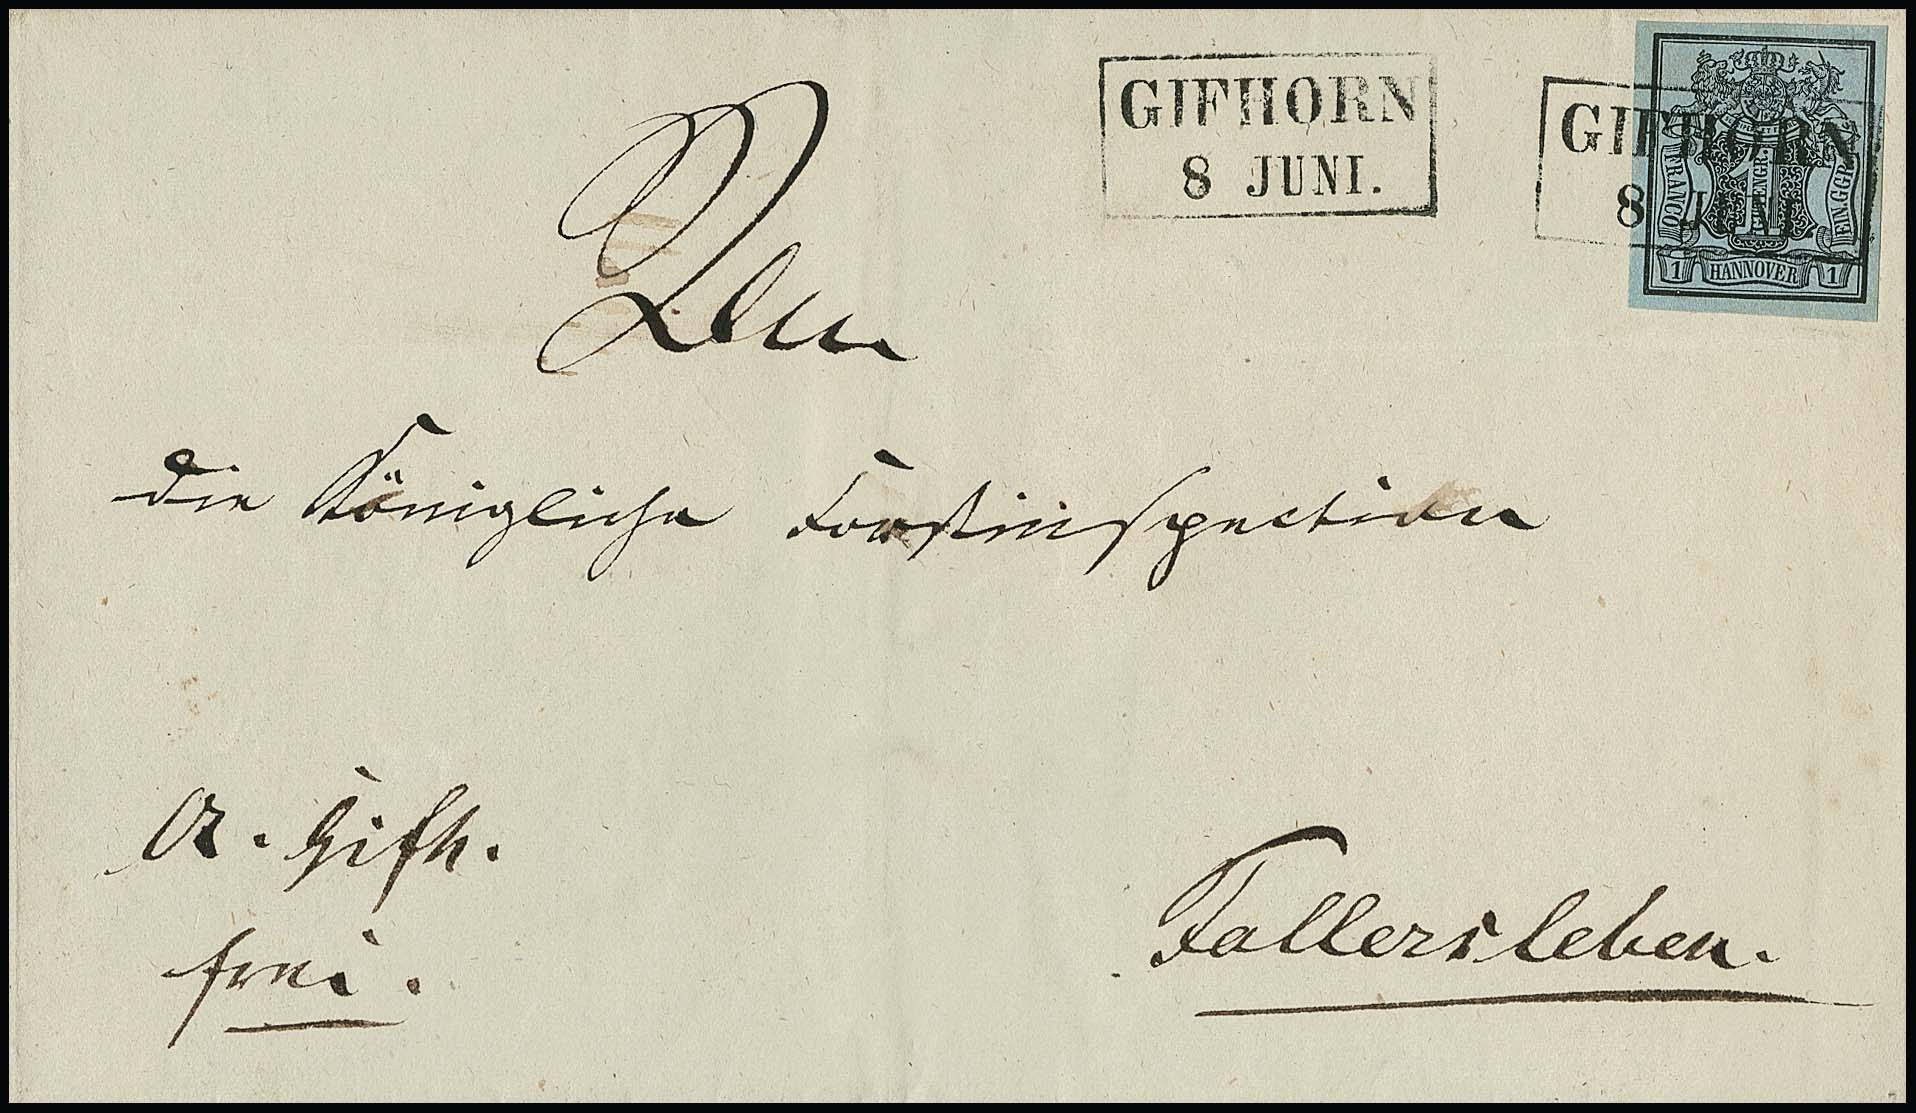 GIFHORN
8 JUNI.
GIFHORN
8 JUNI.
FRANCO
1 GUTENGR.
EIN GGR.
1 HANNOVER 1
An
die Königliche Forstinspection
A. Gifh.
frei.
Fallersleben.